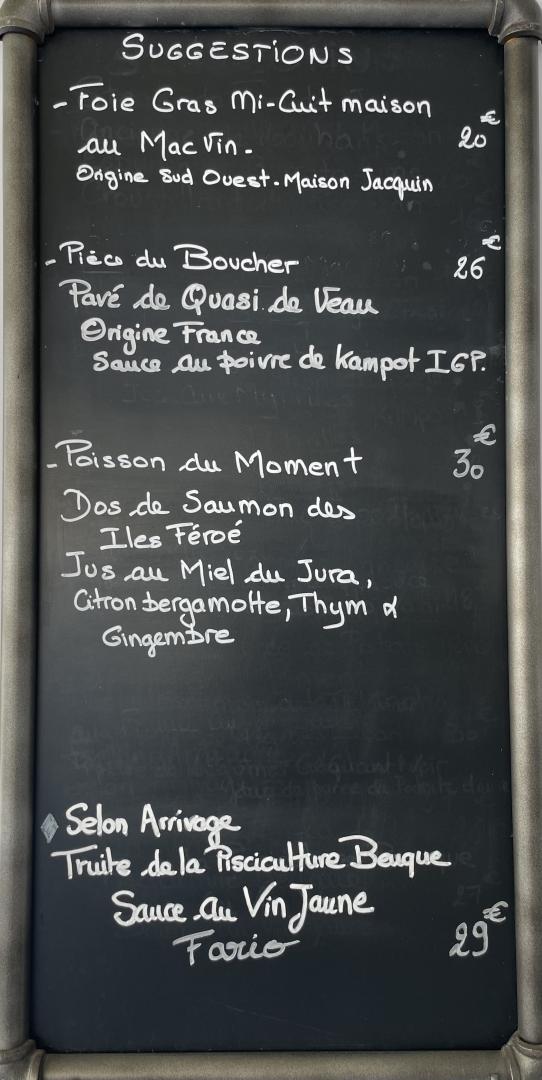 SUGGESTIONS
- Foie Gras Mi-Cuit maison
au MacVin. 20€
Origine Sud Ouest. Maison Jacquin
- Pièce du Boucher 26€
Pavé de Quasi de Veau
Origine France
Sauce au poivre de Kampot IGP.
- Poisson du Moment 30€
Dos de Saumon des
Iles Féroé
Jus au Miel du Jura,
Citron bergamotte, Thym &
Gingembre
Selon Arrivage
Truite de la Pisciculture Beuque
Sauce au Vin Jaune
Fario 29€